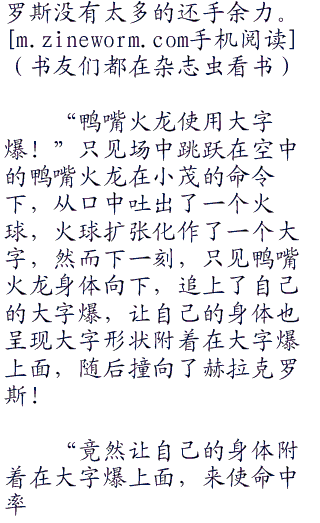 罗斯没有太多的还手余力。
[m.zineworm.com手机阅读]
（书友们都在杂志虫看书）
“鸭嘴火龙使用大字
爆！”只见场中跳跃在空中
的鸭嘴火龙在小茂的命令
下，从口中吐出了一个火
球，火球扩张化作了一个大
字，然而下一刻，只见鸭嘴
火龙身体向下，追上了自己
的大字爆，让自己的身体也
呈现大字形状附着在大字爆
上面，随后撞向了赫拉克罗
斯！
“竟然让自己的身体附
着在大字爆上面，来使命中
率